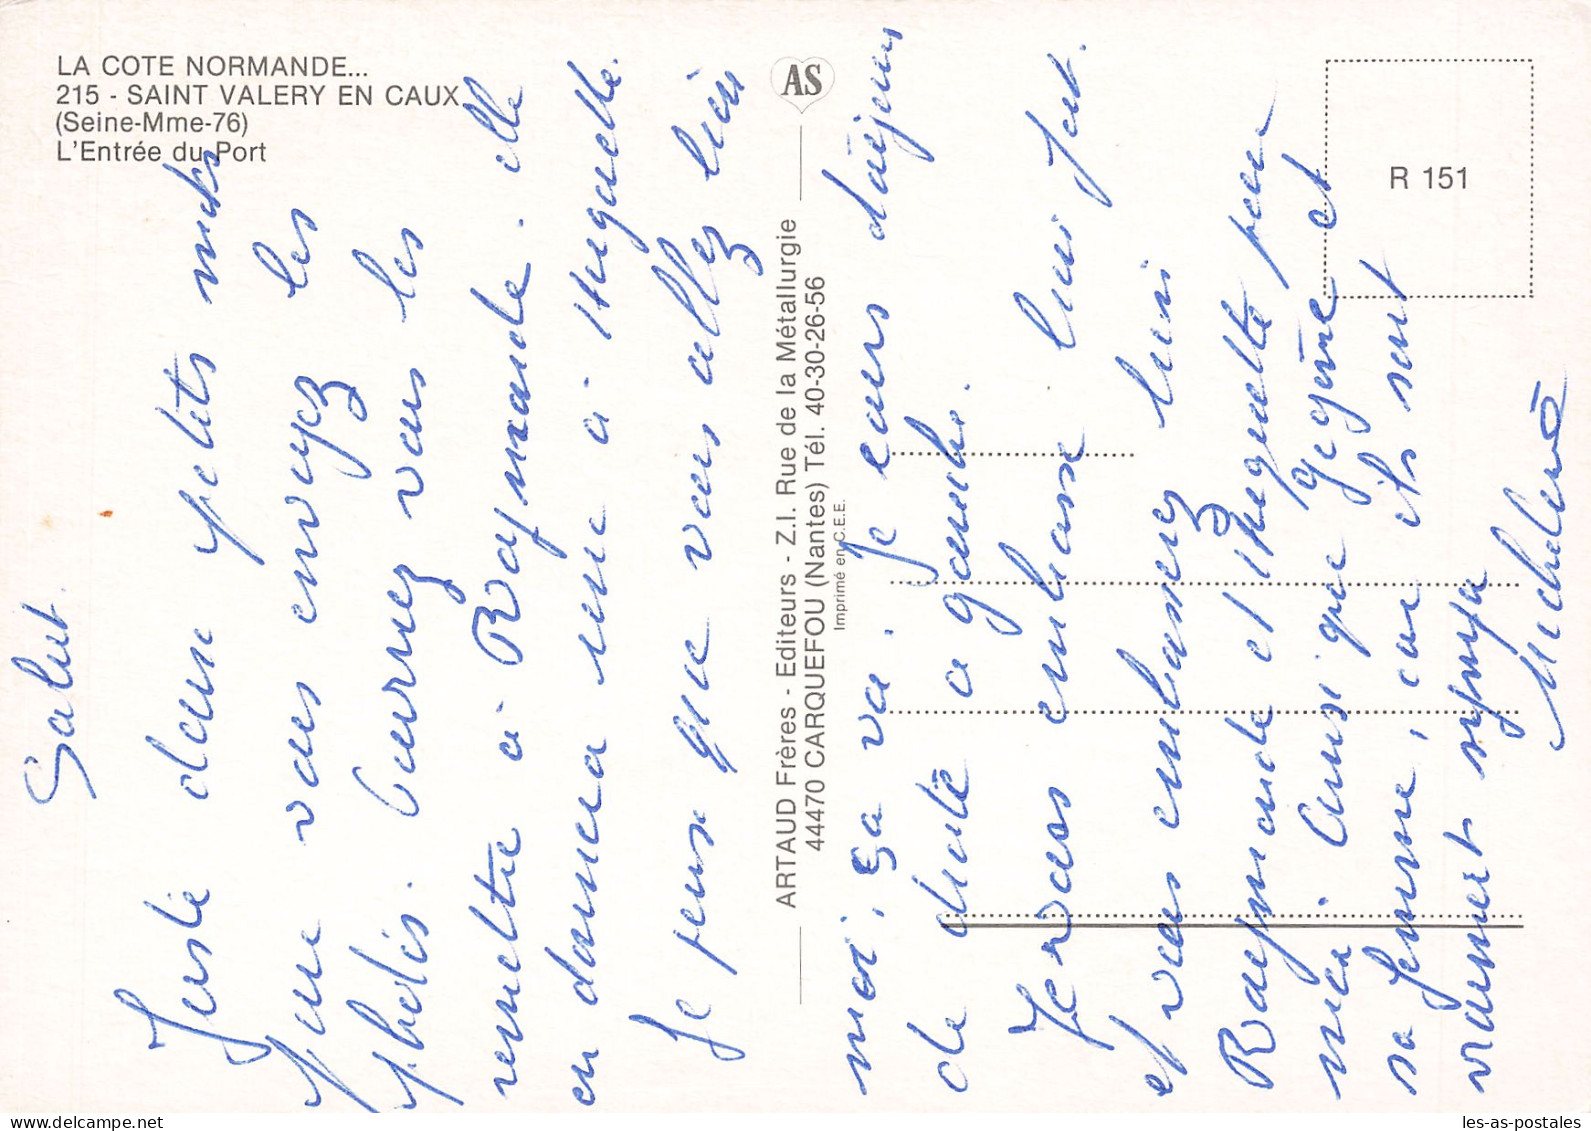 LA COTE NORMANDE...
215 - SAINT VALERY EN CAUX
(Seine-Mme-76)
L'Entrée du Port
AS
ARTAUD Frères - Editeurs - Z.I. Rue de la Métallurgie
44470 CARQUEFOU (Nantes) Tél. 40-30-26-56
Imprimé en C.E.E.
R 151
Salut.
Juste deux petits mots
pour vous envoyez les
photos. Pourrez vous les
remettre à Raymonde. elle
en donnera une à Huguette.
Je pense que vous allez bien
moi, ça va. Je cours toujours
de droite a gauche.
Je vous embrasse bien fort.
et vous embrasserez bien
Raymonde et Huguette pour
moi. Ainsi que Gégène et
sa femme, car ils sont
vraiment sympa
Micheline
les-as-postales.com